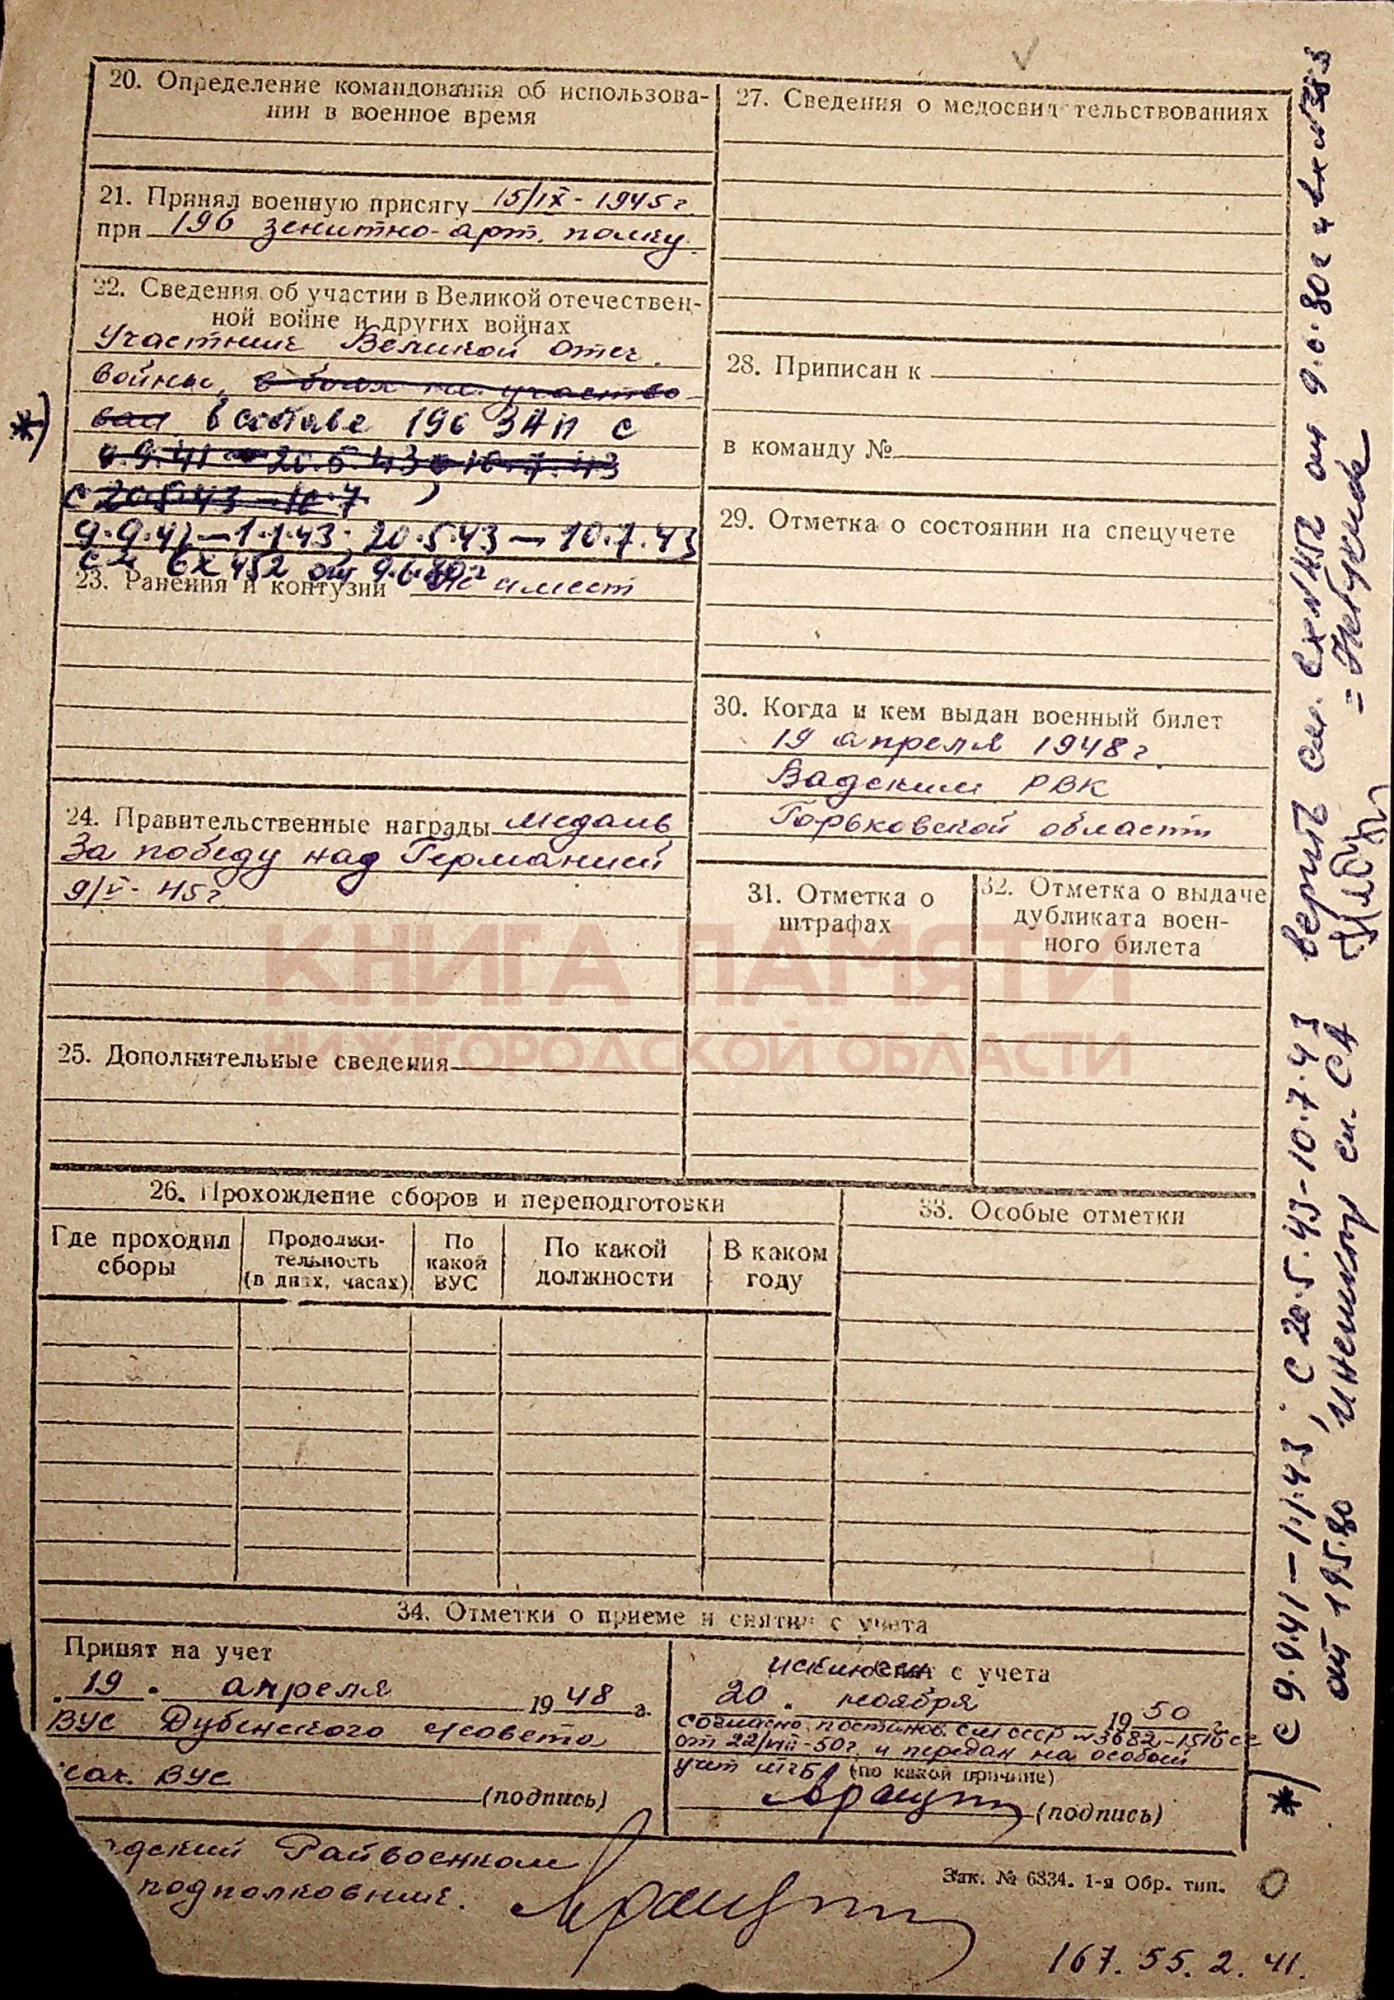 20. Определение командования об использова-
нии в военное время
21. Принял военную присягу 15/IX - 1945 г.
при 196 зенитно-арт. полку.
22. Сведения об участии в Великой отечествен-
ной войне и других войнах
Участник Великой отеч.
войны, в боях не участво
вал в составе 196 ЗАП с
9.9.41 - 20.5.43 10.7.43
с 20.5.43 - 10.7
9.9.41 — 1.1.43; 20.5.43 — 10.7.43
вх 452 от 9.6.80 г
23. Ранения и контузии Не имеет
24. Правительственные награды Медаль
За победу над Германией
9/V - 45 г
25. Дополнительные сведения
27. Сведения о медосвидетельствованиях
28. Приписан к
в команду №
29. Отметка о состоянии на спецучете
30. Когда и кем выдан военный билет
19 апреля 1948 г.
Вадским РВК
Горьковской области
31. Отметка о
штрафах
32. Отметка о выдаче
дубликата воен-
ного билета
КНИГА ПАМЯТИ
НИЖЕГОРОДСКОЙ ОБЛАСТИ
26. Прохождение сборов и переподготовки
Где проходил
сборы
Продолжи-
тельность
(в днях, часах)
По
какой
ВУС
По какой
должности
В каком
году
33. Особые отметки
34. Отметки о приеме и снятии с учета
Принят на учет
19 апреля 1948 г.
ВУС Дубенского с/совета
ВУС
(подпись)
исключен с учета
20 ноября 1950
согласно постанов. СМ СССР № 3682-1516сс
от 22/VIII-50г. и передан на особый
учет МГБ (по какой причине)
(подпись)
Райвоенком
подполковник.
Зак. № 6834. 1-я Обр. тип.
167. 55. 2. 41.
*) с 9.9.41 — 1.1.43; с 20.5.43 - 10.7.43 верить см. вх № 452 от 9.6.80 г и вх № 388
от 19.5.80